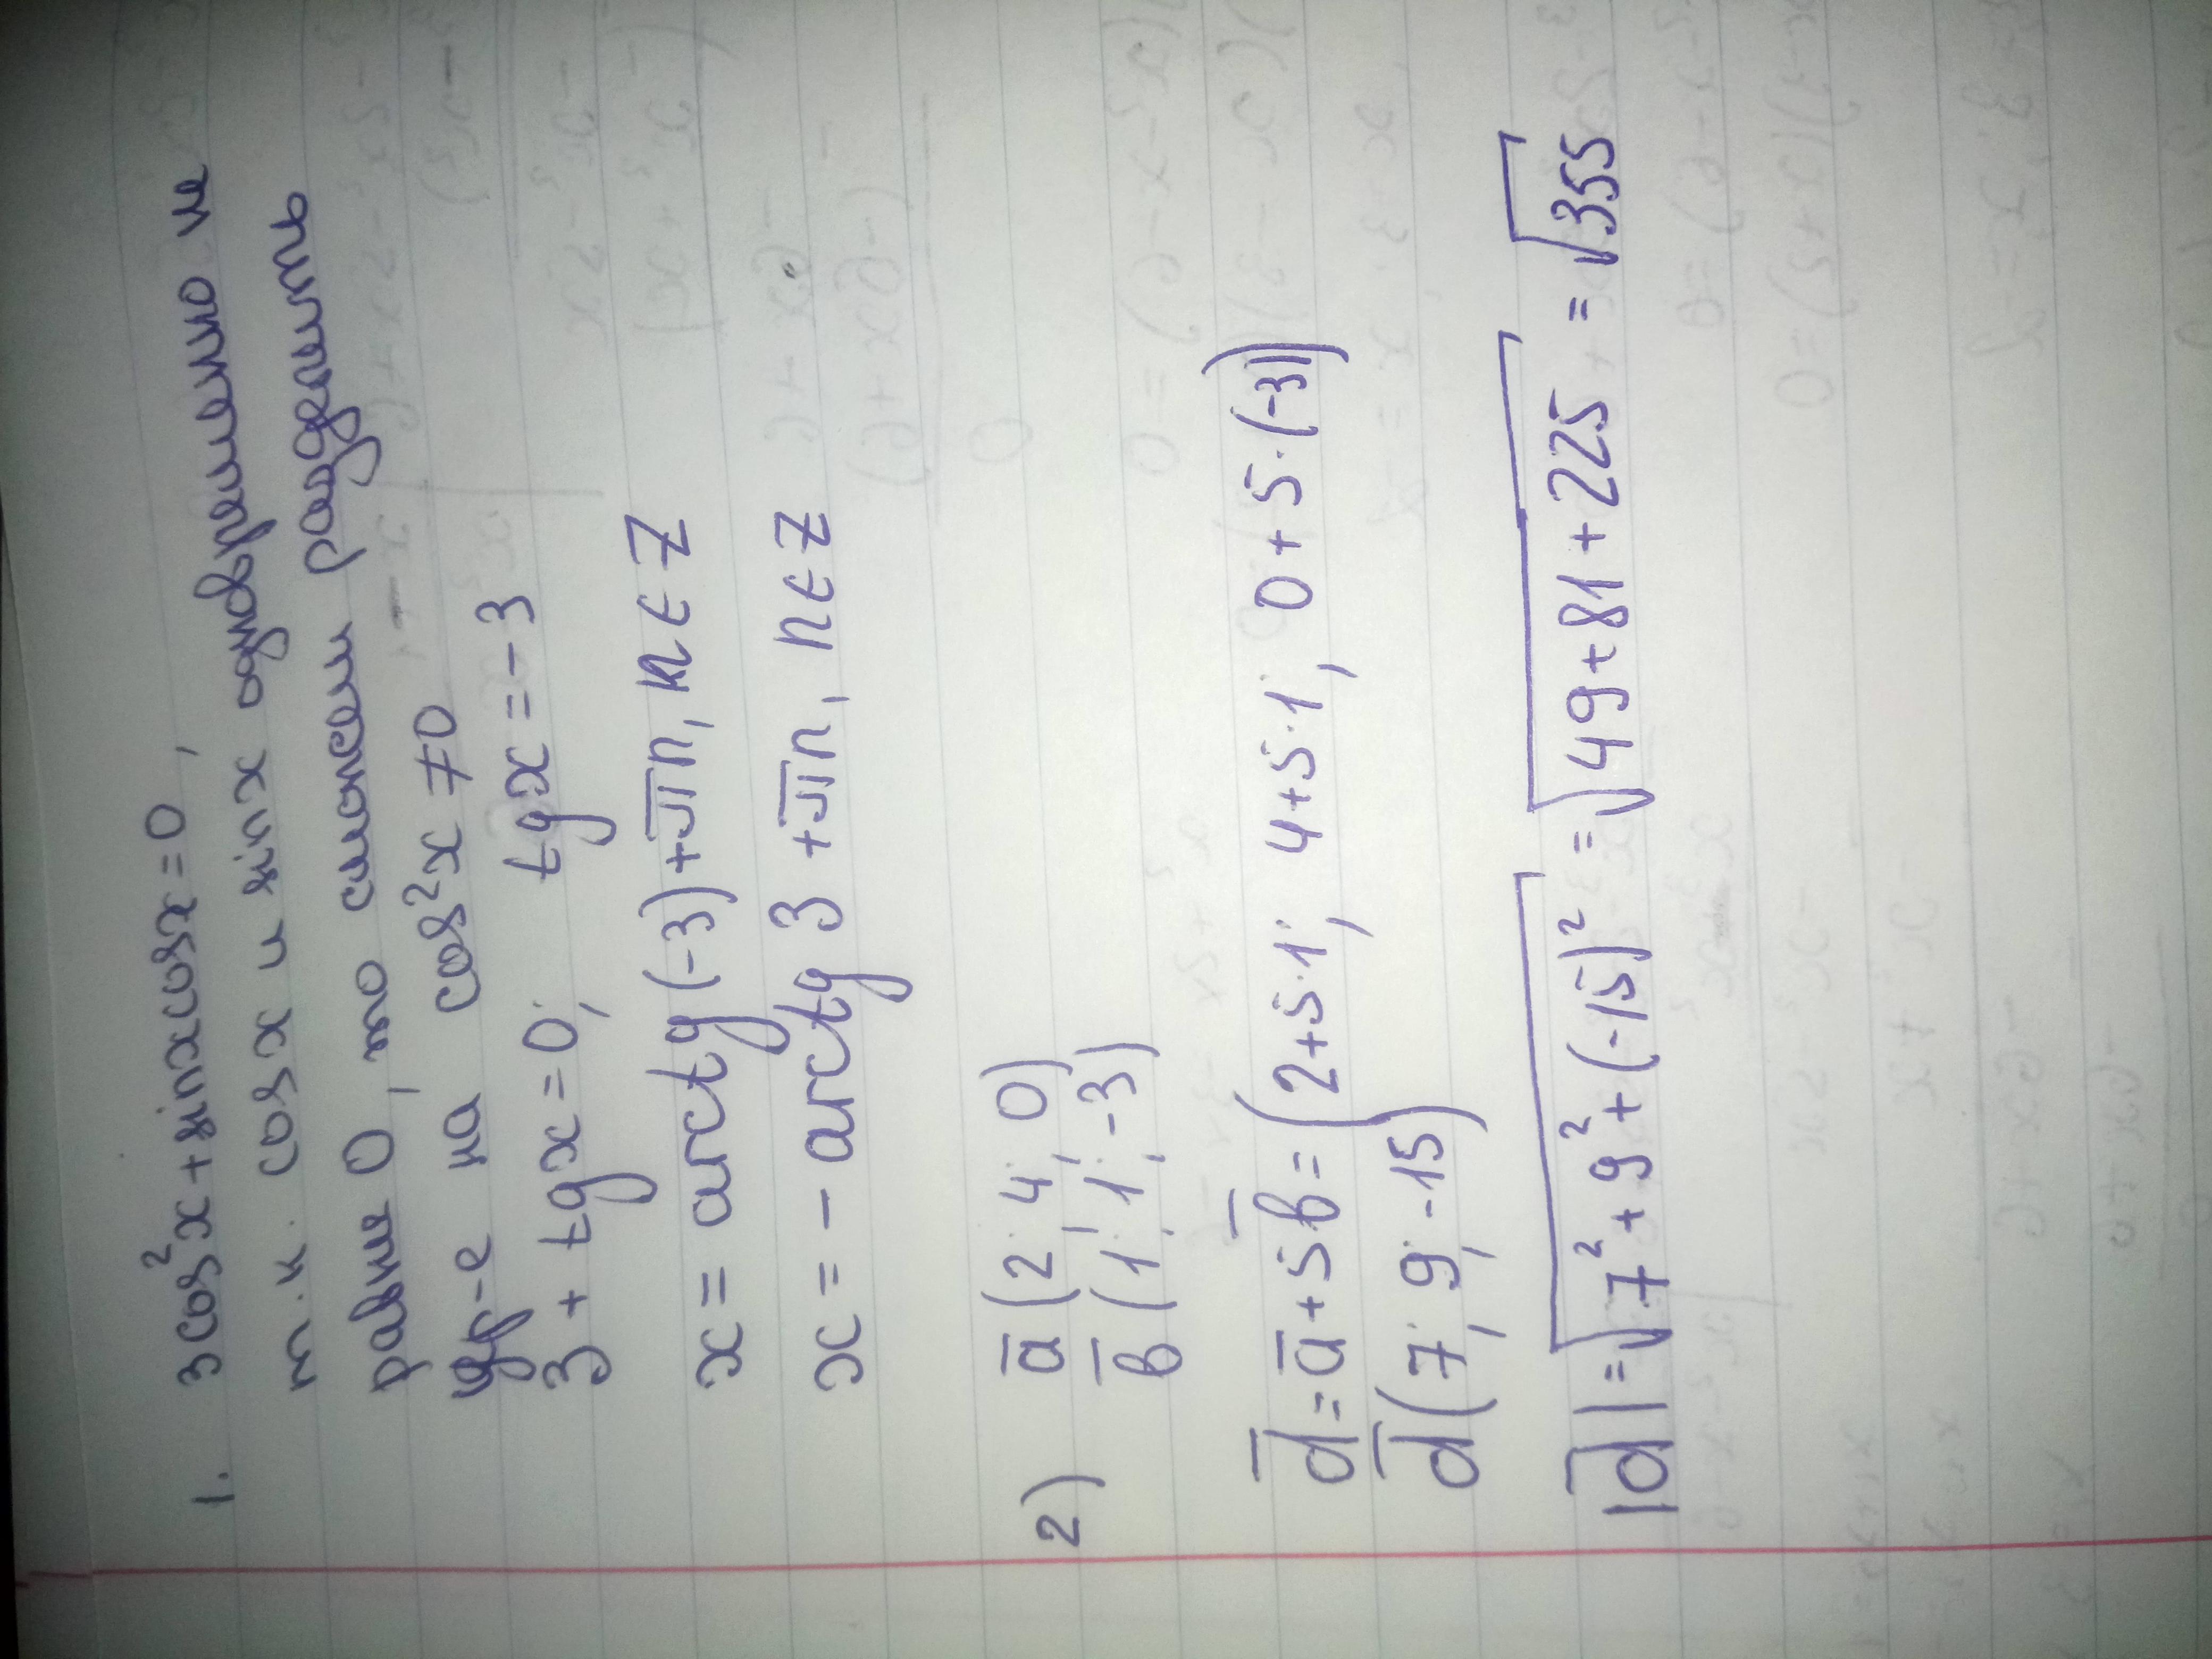 1. 3cos²x + sinxcosx = 0,
т.к. cosx и sinx одновременно не
равны 0, то можно разделить
ур-е на cos²x ≠ 0
3 + tgx = 0; tgx = -3
x = arctg(-3) + πn, n ∈ Z
x = - arctg 3 + πn, n ∈ Z
2) a̅(2; 4; 0)
b̅(1; 1; -3)
d̅ = a̅ + 5b̅ = (2+5·1; 4+5·1; 0+5·(-3))
d̅(7; 9; -15)
|d̅| = √7² + 9² + (-15)² = √49 + 81 + 225 = √355